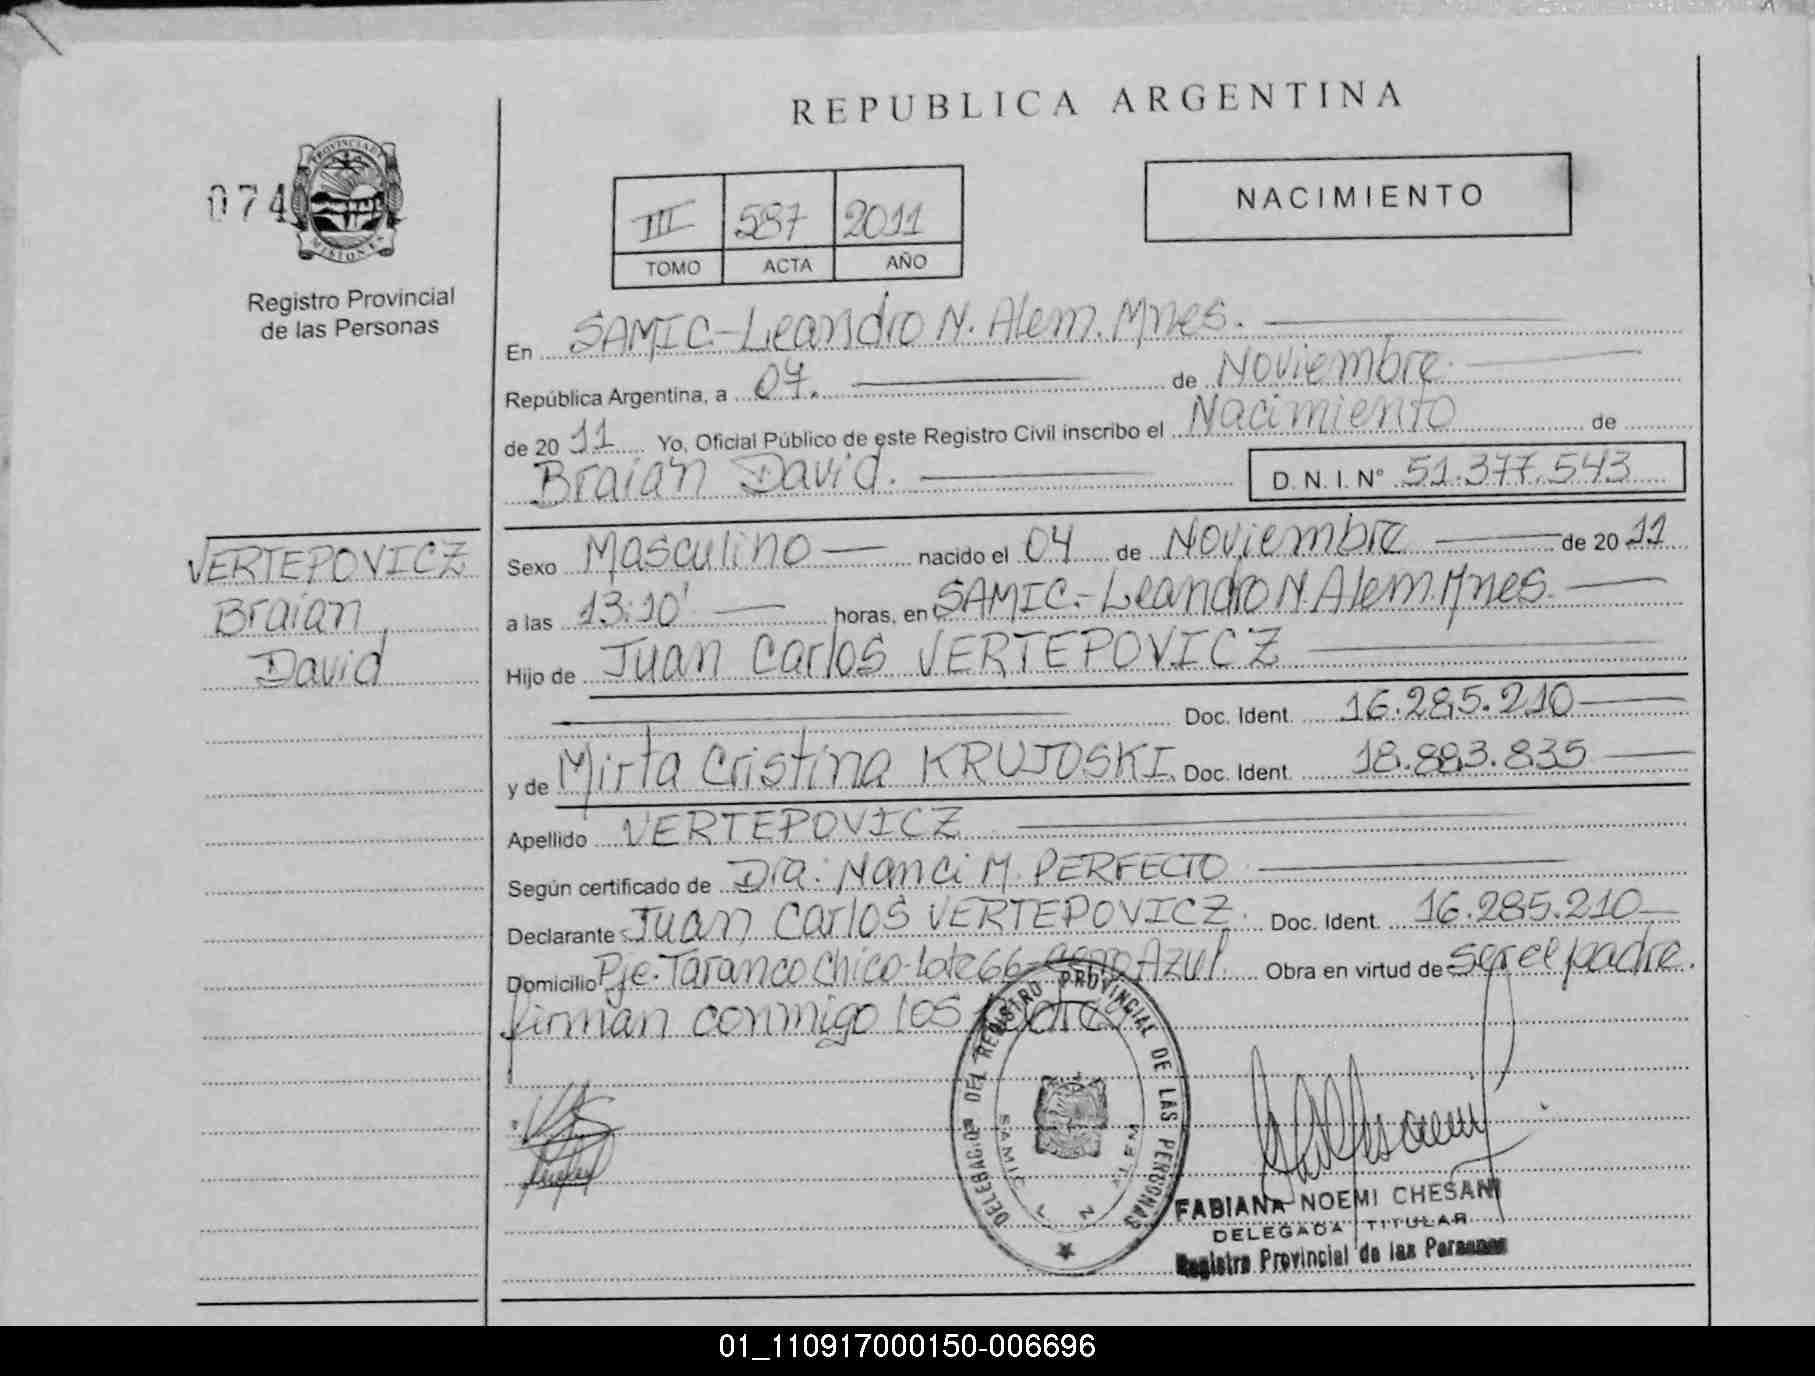 REPUBLICA ARGENTINA
074
PROVINCIA DE
MISIONES
Registro Provincial
de las Personas
III 587 2011
TOMO ACTA AÑO
NACIMIENTO
En SAMIC.-Leandro N. Alem. Mnes.
República Argentina, a 07. de Noviembre.
de 2011 Yo, Oficial Público de este Registro Civil inscribo el Nacimiento de
Braian David. D. N. I. Nº 51.377.543
VERTEPOVICZ
Braian,
David
Sexo Masculino nacido el 04 de Noviembre de 2011
a las 13:10' horas, en SAMIC.-Leandro N. Alem. Mnes.
Hijo de Juan Carlos VERTEPOVICZ
Doc. Ident. 16.285.210
y de Mirta Cristina KRUJOSKI. Doc. Ident. 18.883.835
Apellido VERTEPOVICZ
Según certificado de Dra: Nanci M. PERFECTO
Declarante Juan Carlos VERTEPOVICZ. Doc. Ident. 16.285.210
Domicilio Pje. Taranco Chico-Lote 66-Cerro Azul. Obra en virtud de ser el padre.
firman conmigo los padres
DELEGACION DEL REGISTRO PROVINCIAL DE LAS PERSONAS
SAMIC L N ALEM
FABIANA NOEMI CHESANI
DELEGADA TITULAR
Registro Provincial de las Personas
01_110917000150-006696